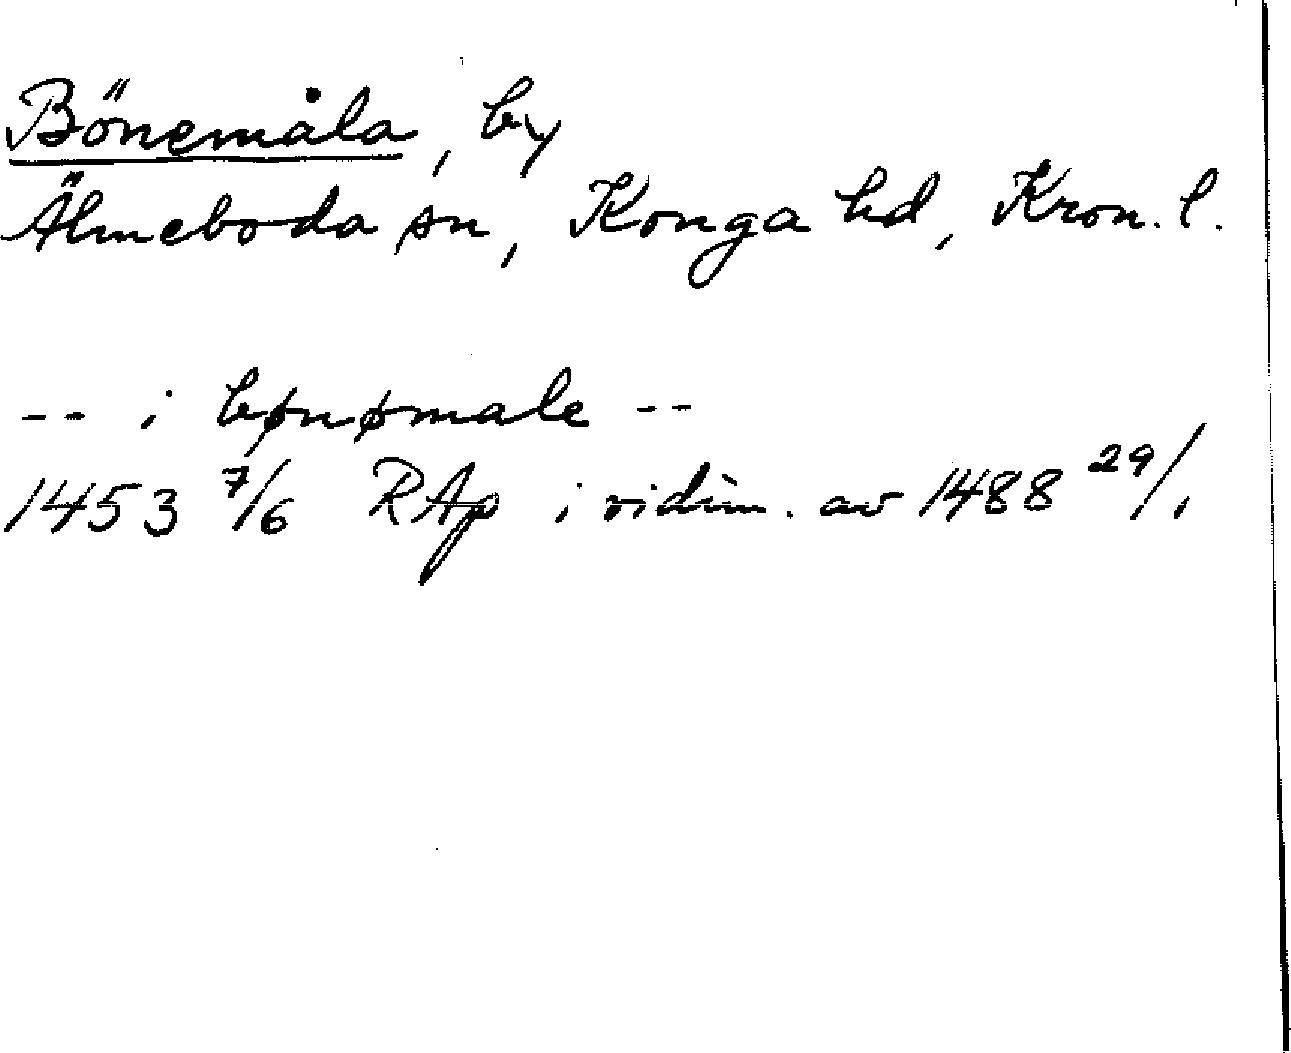 Bönemåla, by
Älmeboda sn, Konga hd, Kron. l.
-- i bønømale --
1453 7/6 RAp i vidim. av 1488 29/1